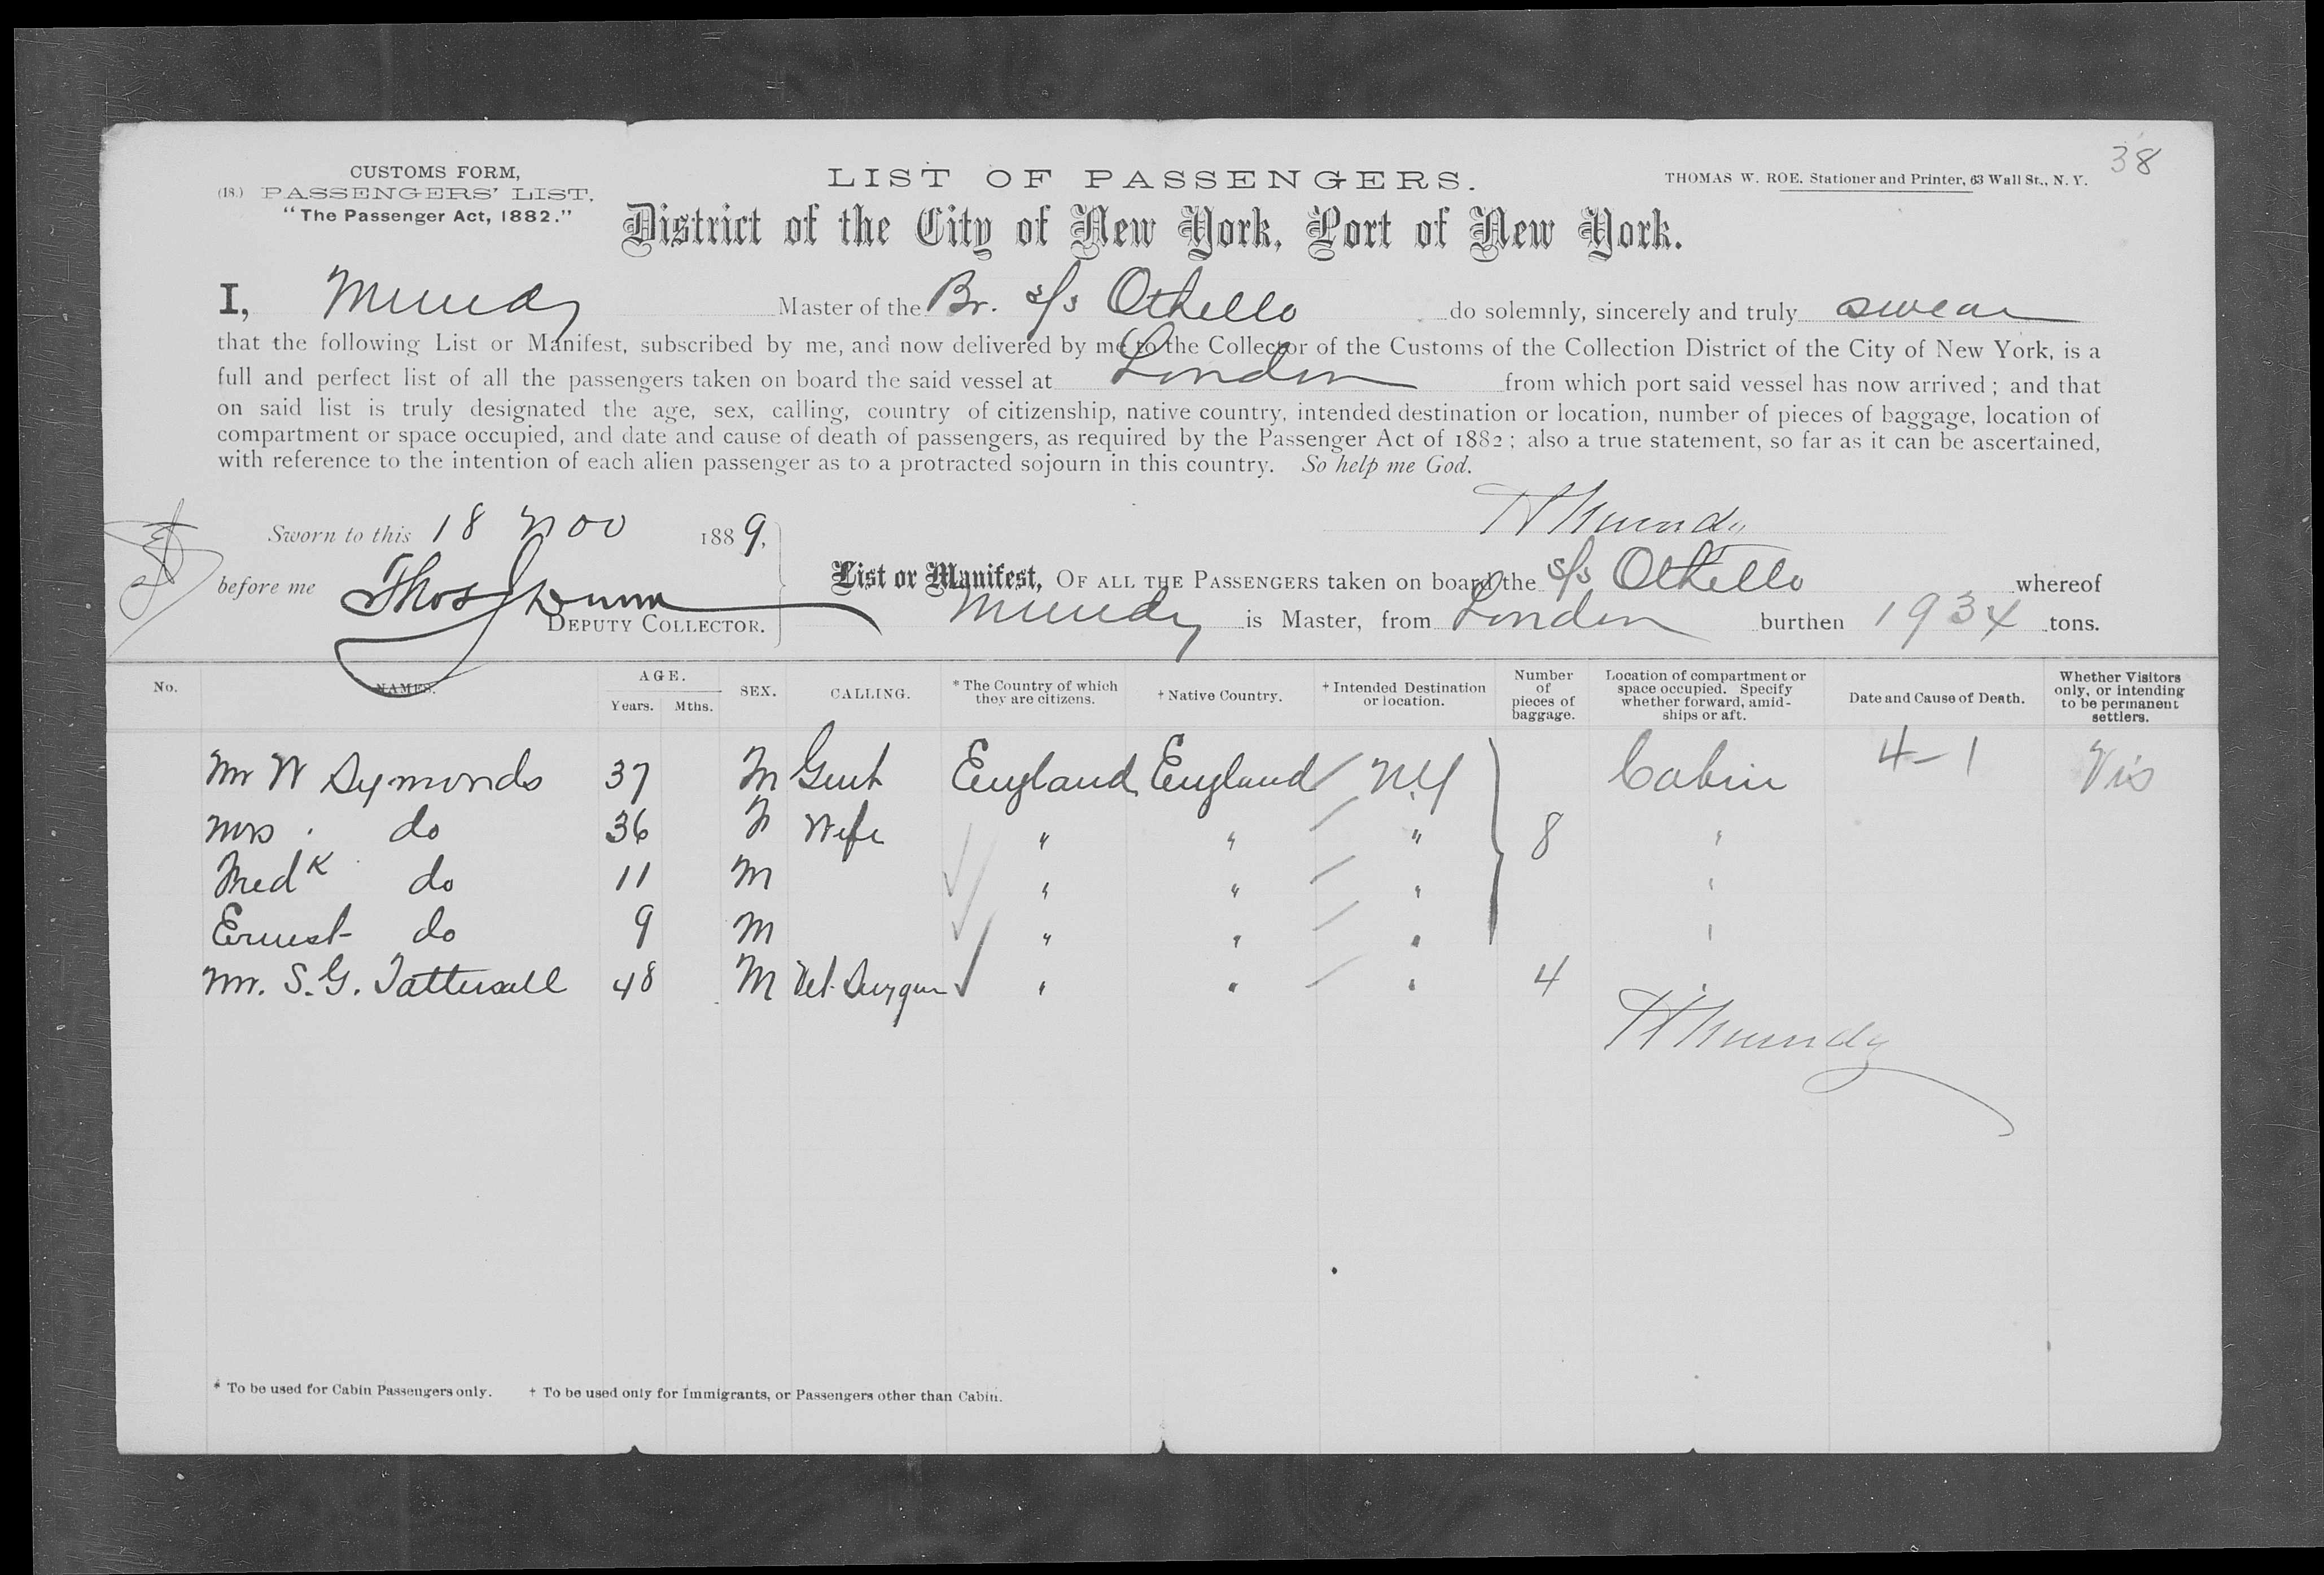 38
CUSTOMS FORM,
(18.) PASSENGERS' LIST,
"The Passenger Act, 1882."
LIST OF PASSENGERS.
THOMAS W. ROE. Stationer and Printer, 63 Wall St., N. Y.
District of the City of New York, Port of New York.
I, Mundy Master of the Br. s/s Othello do solemnly, sincerely and truly swear
that the following List or Manifest, subscribed by me, and now delivered by me to the Collector of the Customs of the Collection District of the City of New York, is a
full and perfect list of all the passengers taken on board the said vessel at London from which port said vessel has now arrived; and that
on said list is truly designated the age, sex, calling, country of citizenship, native country, intended destination or location, number of pieces of baggage, location of
compartment or space occupied, and date and cause of death of passengers, as required by the Passenger Act of 1882; also a true statement, so far as it can be ascertained,
with reference to the intention of each alien passenger as to a protracted sojourn in this country. So help me God.
H Mundy
Sworn to this 18 Nov 1889,
before me Thos J Dunn
DEPUTY COLLECTOR.
List or Manifest, OF ALL THE PASSENGERS taken on board the s/s Othello whereof
Mundy is Master, from London burthen 1934 tons.
No. NAMES. AGE. Years. Mths. SEX. CALLING. * The Country of which they are citizens. † Native Country. † Intended Destination or location. Number of pieces of baggage. Location of compartment or space occupied. Specify whether forward, amidships or aft. Date and Cause of Death. Whether Visitors only, or intending to be permanent settlers.
Mr W Symonds 37 M Gent England England / N.Y Cabin 4-1 Vis
Mrs . do 36 F Wife " " / " 8 "
Fredk do 11 M " " / " "
Ernest do 9 M " " / " "
Mr. S. G. Tattersall 48 M Vet. Surgeon " " / " 4 "
H Mundy
* To be used for Cabin Passengers only. † To be used only for Immigrants, or Passengers other than Cabin.